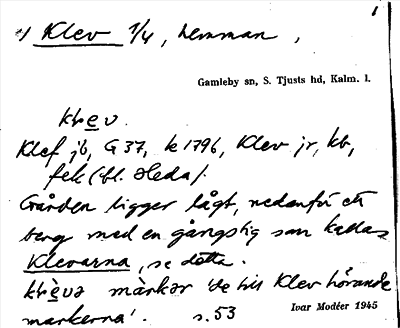 1) Klev 1/4, hemman,
Gamleby sn, S. Tjusts hd, Kalm. l.
klev.
Klef jb, G 37, k 1796, Klev jr, kb,
fek (bl. Heda).
Gården ligger lågt, nedanför ett
berg med en gångstig som kallas
Klevarna, se detta.
klèvə màrkər 'de till Klev hörande
markerna'. s. 53
Ivar Modéer 1945